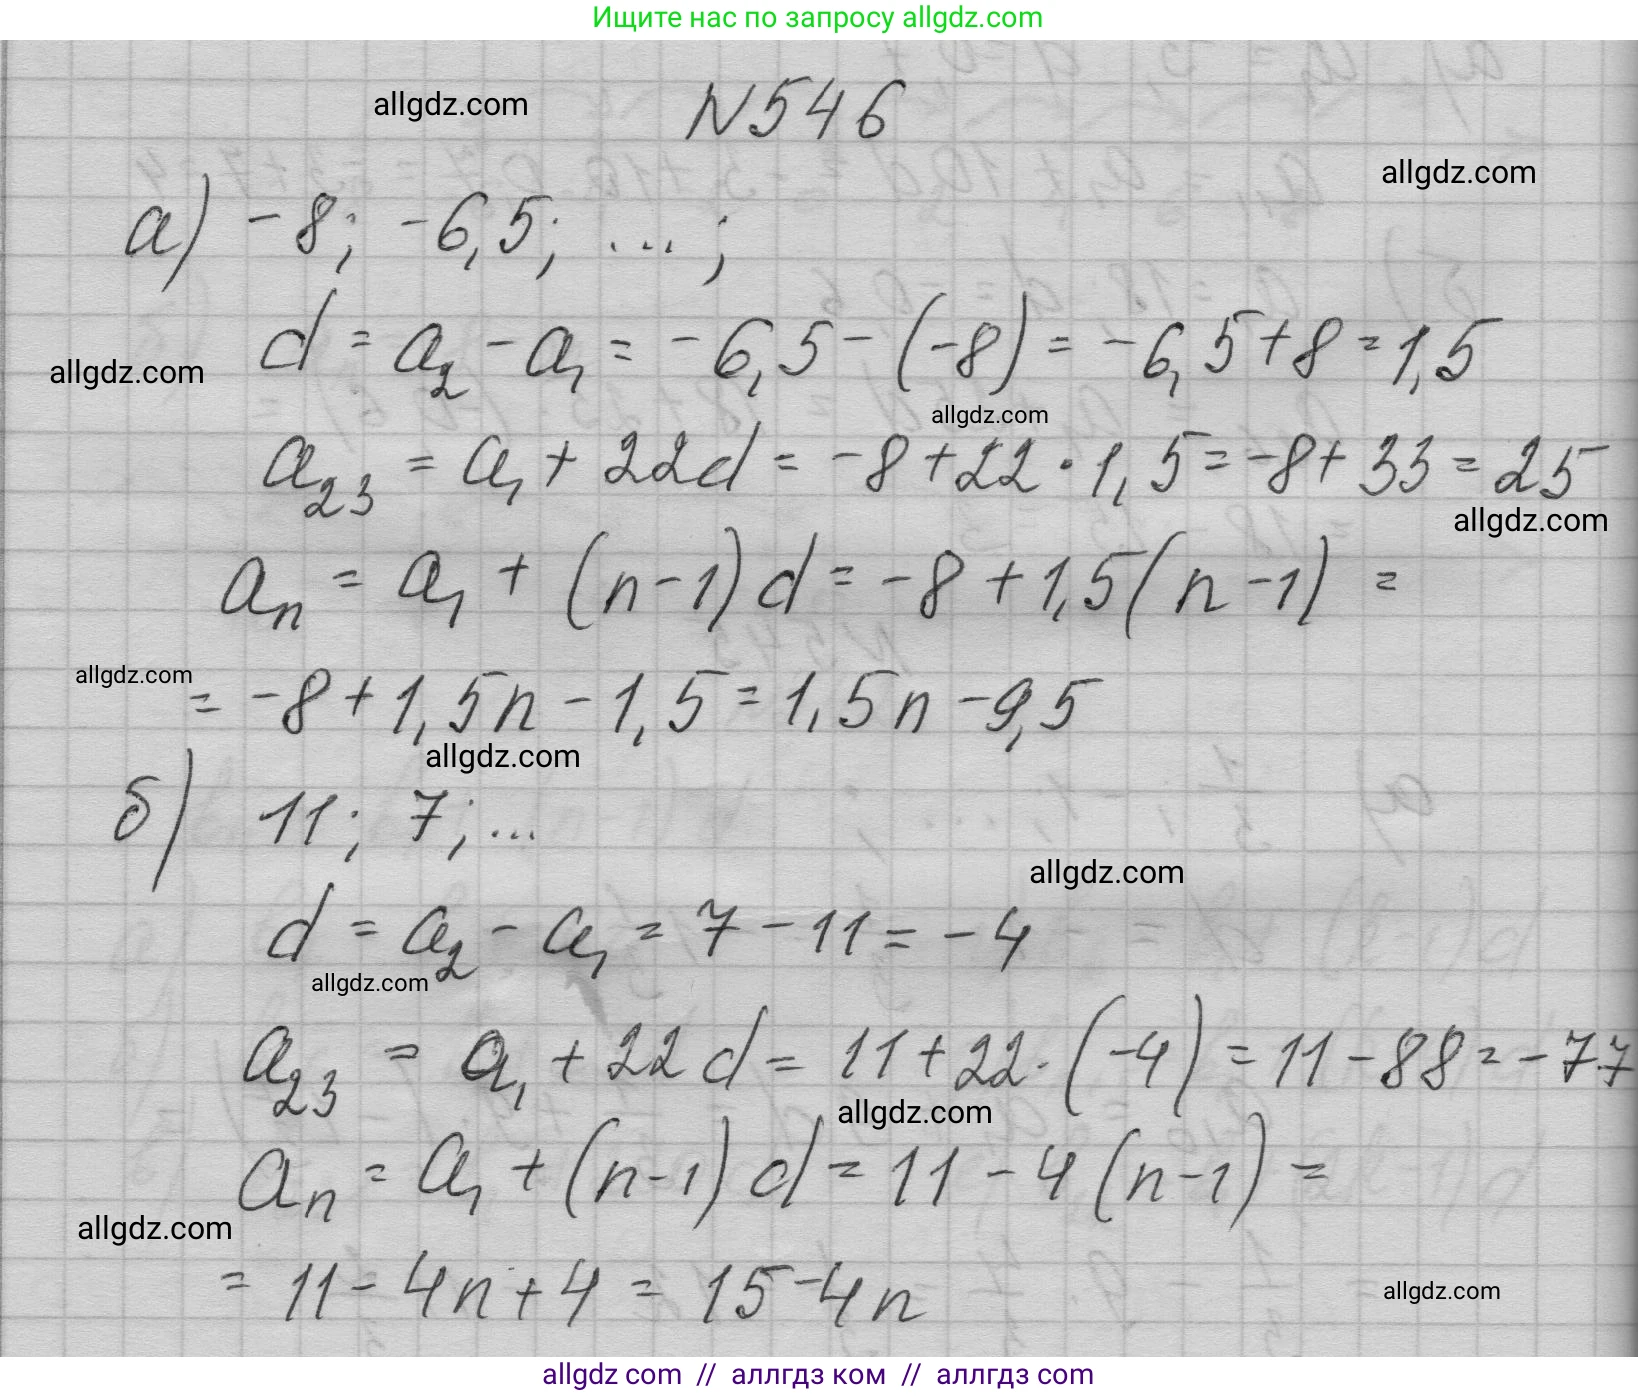 Ищите нас по запросу allgdz.com
allgdz.com
N546
allgdz.com
а) -8; -6,5; ... ;
d = a₂ - a₁ = -6,5 - (-8) = -6,5 + 8 = 1,5
allgdz.com
allgdz.com
a₂₃ = a₁ + 22d = -8 + 22 · 1,5 = -8 + 33 = 25
allgdz.com
aₙ = a₁ + (n-1)d = -8 + 1,5(n-1) =
allgdz.com
= -8 + 1,5n - 1,5 = 1,5n - 9,5
allgdz.com
б) 11; 7; ...
allgdz.com
d = a₂ - a₁ = 7 - 11 = -4
allgdz.com
a₂₃ = a₁ + 22d = 11 + 22 · (-4) = 11 - 88 = -77
allgdz.com
aₙ = a₁ + (n-1)d = 11 - 4(n-1) =
allgdz.com
= 11 - 4n + 4 = 15 - 4n
allgdz.com
allgdz com // аллгдз ком // аллгдз com